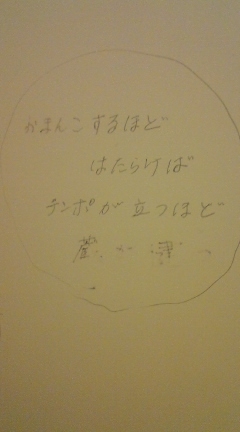 がまんこするほど
はたらけば
テンポが立つほど
蔵が